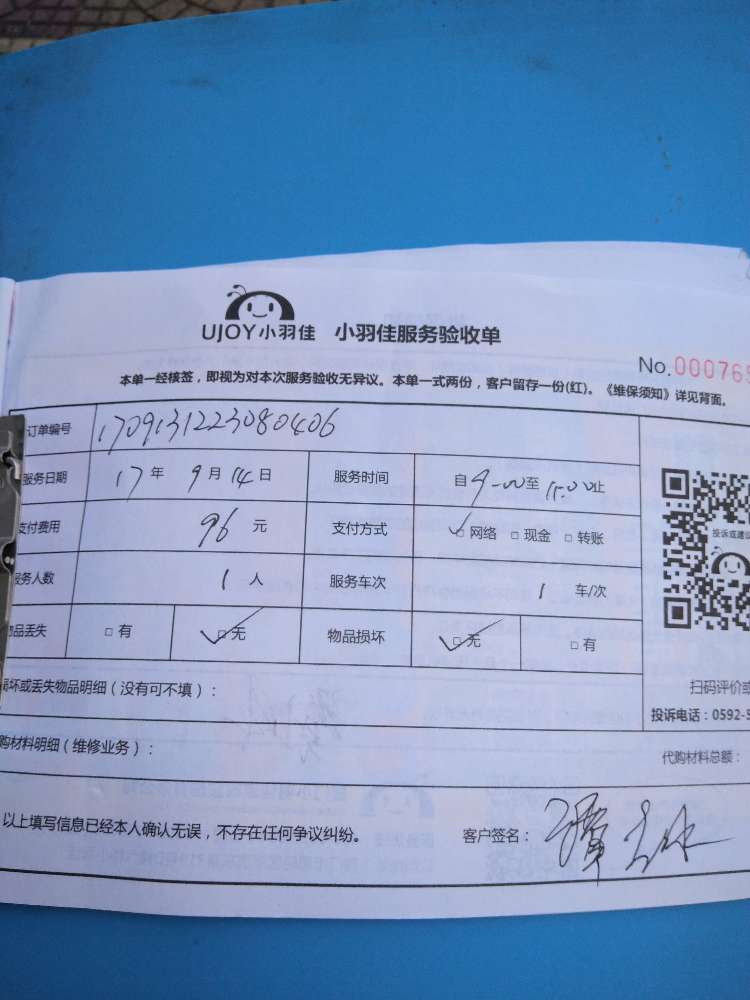 UJOY小羽佳 小羽佳服务验收单
No.00076
本单一经核签，即视为对本次服务验收无异议。本单一式两份，客户留存一份(红)。《维保须知》详见背面。
订单编号 1709131223080406
服务日期 17年 9月 14日 服务时间 自9:00至11:00止
支付费用 96元 支付方式 ☑网络 □现金 □转账
服务人数 1人 服务车次 1车/次
物品丢失 □有 ☑无 物品损坏 ☑无 □有
投诉或建议
损坏或丢失物品明细（没有可不填）：
扫码评价或
投诉电话：0592-5
购材料明细（维修业务）：
代购材料总额：
以上填写信息已经本人确认无误，不存在任何争议纠纷。 客户签名：